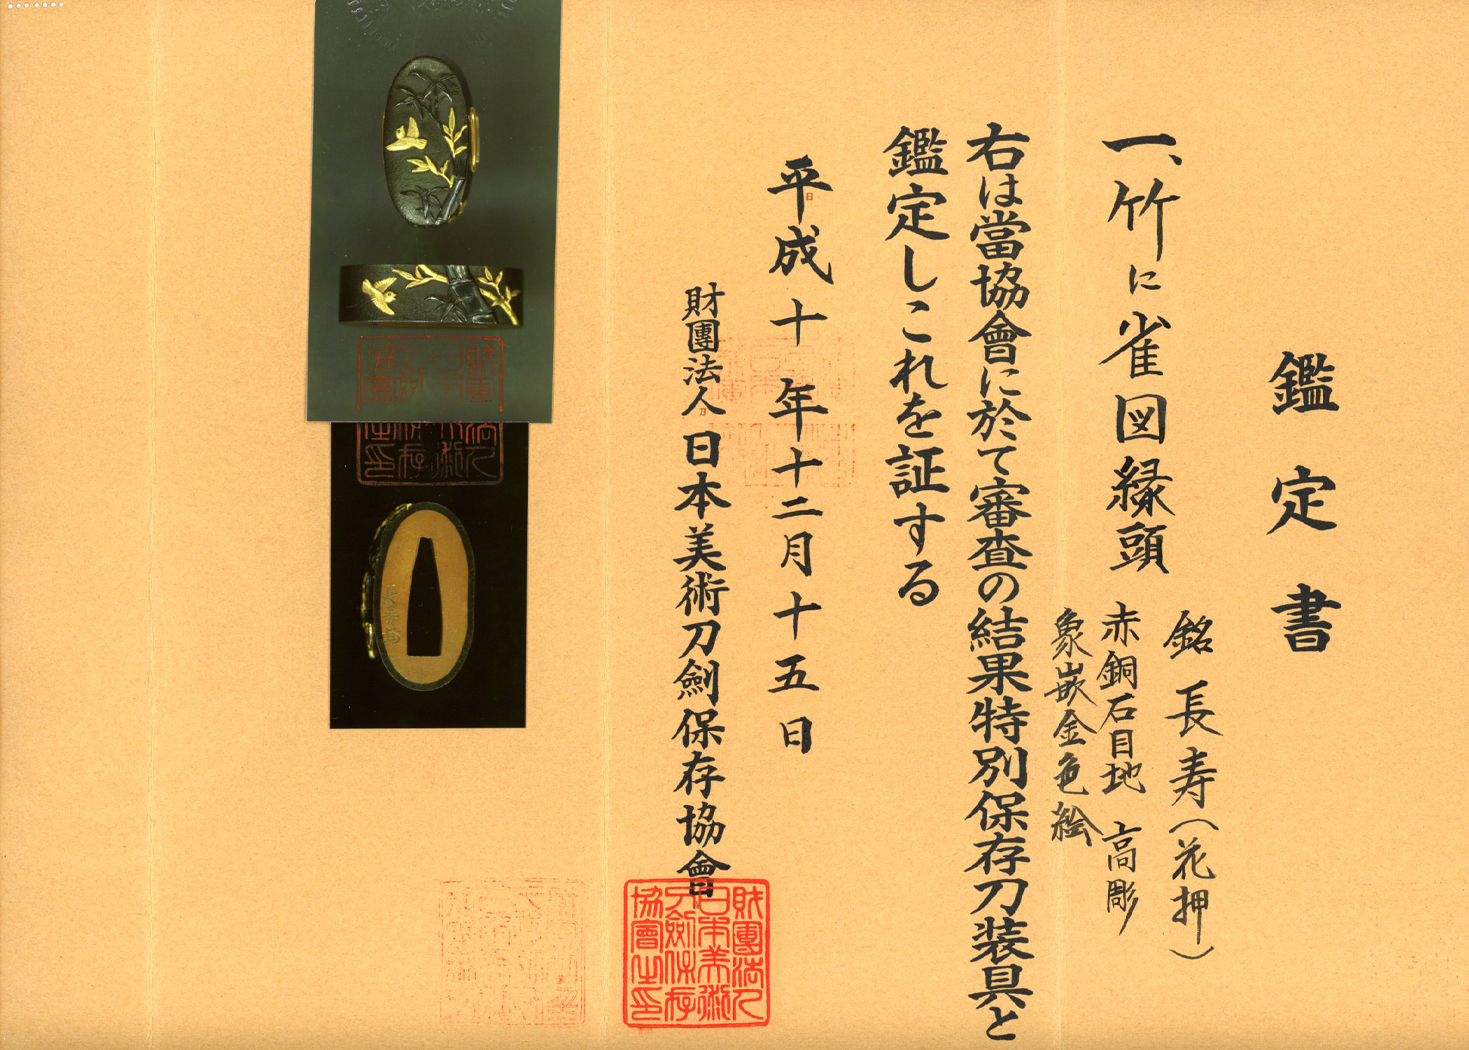 鑑定書
一、竹に雀図縁頭
銘 長寿（花押）
赤銅石目地 高彫
象嵌金色絵
右は當協會に於て審査の結果特別保存刀装具と
鑑定しこれを証する
平成十年十二月十五日
財團法人日本美術刀劍保存協會
財團法人
日本美術
刀劍保存
協會之印